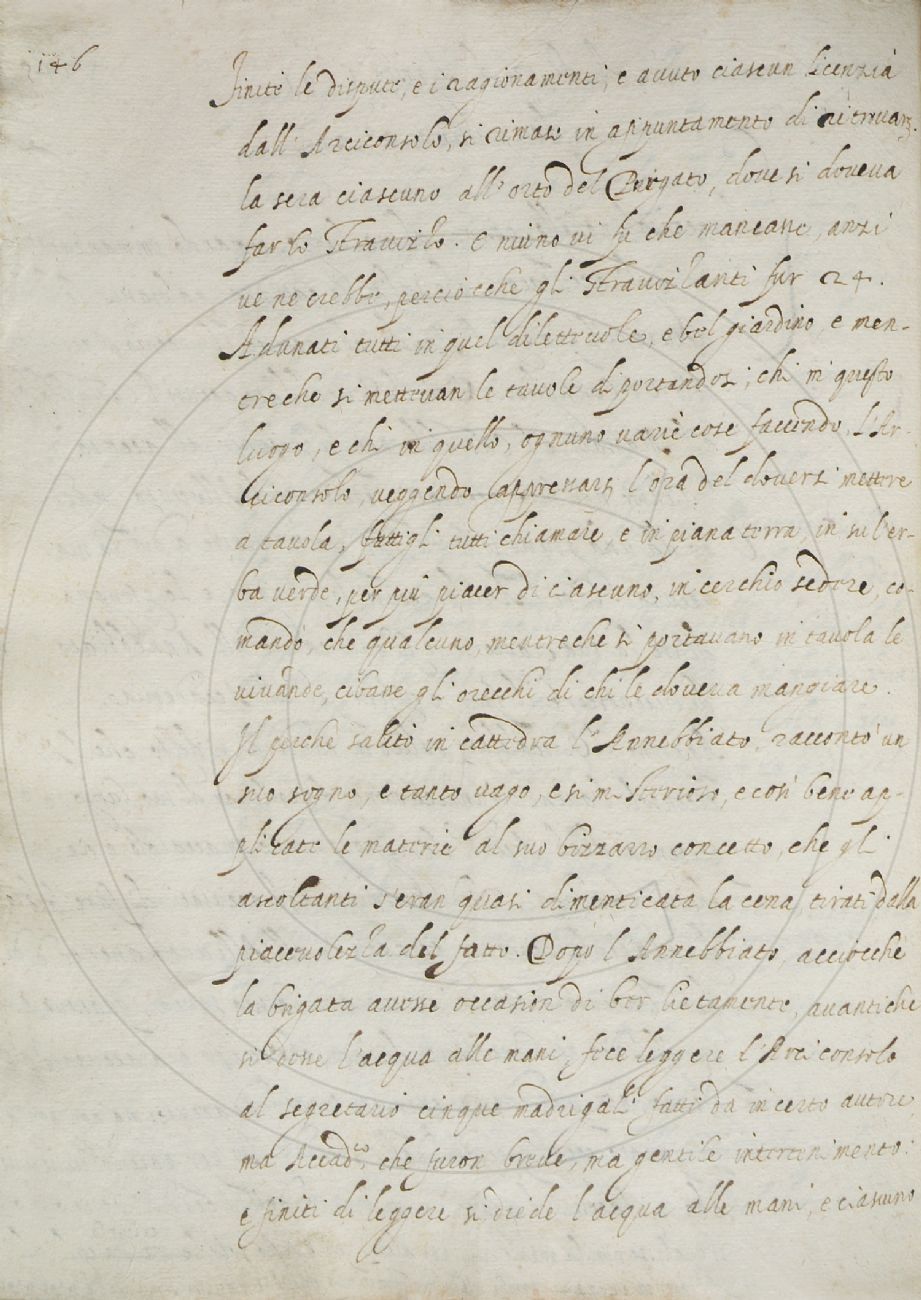 146
Finite le dispute, e i ragionamenti, e avuto ciascun licenzia
dall' Arciconsolo, si rimase in appuntamento di ritruovarsi
la sera ciascuno all' orto del Purgato, dove si doveva
far lo Stravizzo. e niuno vi fu che mancasse, anzi
ve ne crebbe, perciocche gli Stravizzanti fur 24.
Adunati tutti in quel dilettevole, e bel giardino, e men-
treche si mettevan le tavole diportandosi, chi in questo
luogo, e chi in quello, ognuno varie cose faccendo, l'Ar-
ciconsolo, veggendo appressarsi l'ora del doversi mettere
a tavola, fattigli tutti chiamare e in piana terra, in su l'er-
ba verde, per più piacer di ciascuno, in cerchio sedere, co-
mandò, che qualcuno, mentreche si portavano in tavola le
vivande, cibasse gl' orecchi di chi le doveva mangiare.
Il perchè salito in cattedra l'Annebbiato, raccontò un
suo sogno, e tanto vago, e sì misterioso, e così bene ap-
plicate le materie al suo bizzarro concetto, che gli
ascoltanti s'eran quasi dimenticata la cena, tirati dalla
piacevolezza del fatto. Dopo l'Annebbiato, acciocchè
la brigata avesse occasion di ber lietamente, avantiche
si desse l'acqua alle mani, fece leggere l'Arciconsolo
al segretario cinque madrigali fatti da incerto autore
ma Accad.co, che furon breve, ma gentile intertenimento:
e finiti di leggere si diede l'acqua alle mani, e ciascuno